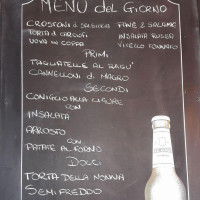 MENU del GIORNO
CROSTONI E SALSICCIA PANE E SALAME
TORTA di CARCIOFI INSALATA RUSSA
UOVA IN COPPA VITELLO TONNATO
PRIMI
TAGLIATELLE AL RAGU'
CANNELLONI di MAURO
SECONDI
CONIGLIO ALLA LIGURE
CON
INSALATA
ARROSTO
CON
PATATE AL FORNO
DOLCI
TORTA DELLA NONNA
SEMIFREDDO